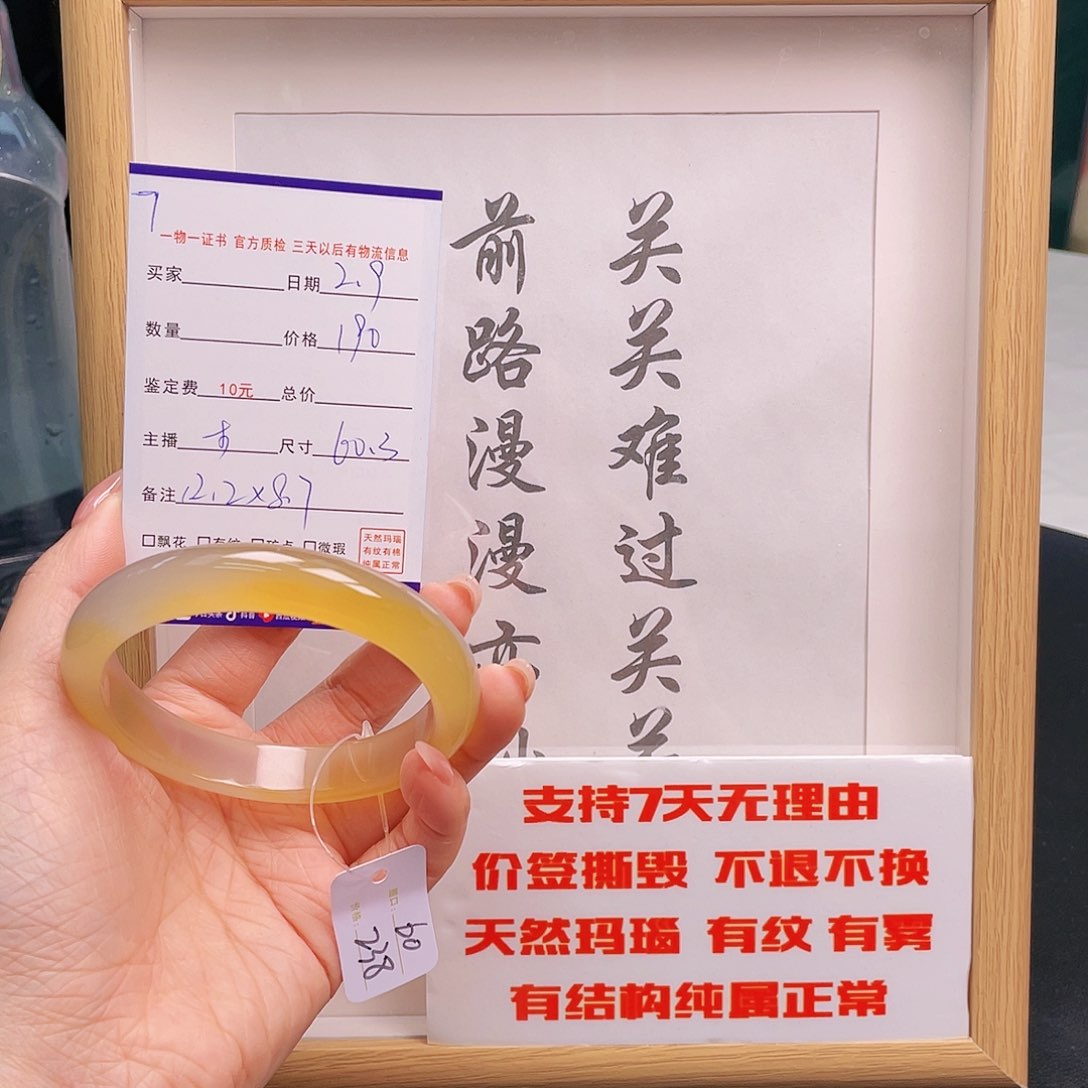 一物一证书 官方质检 三天以后有物流信息
买家 日期 2.9
数量 价格 190
鉴定费 10元 总价
主播 尺寸 60.3
备注 12.2×8.7
□飘花 □有纹 □矿点 □微瑕
天然玛瑙
有纹有棉
纯属正常
抖音
关关难过关关
前路漫漫亦
圈口: 60
价格: 238
支持7天无理由
价签撕毁 不退不换
天然玛瑙 有纹 有雾
有结构纯属正常